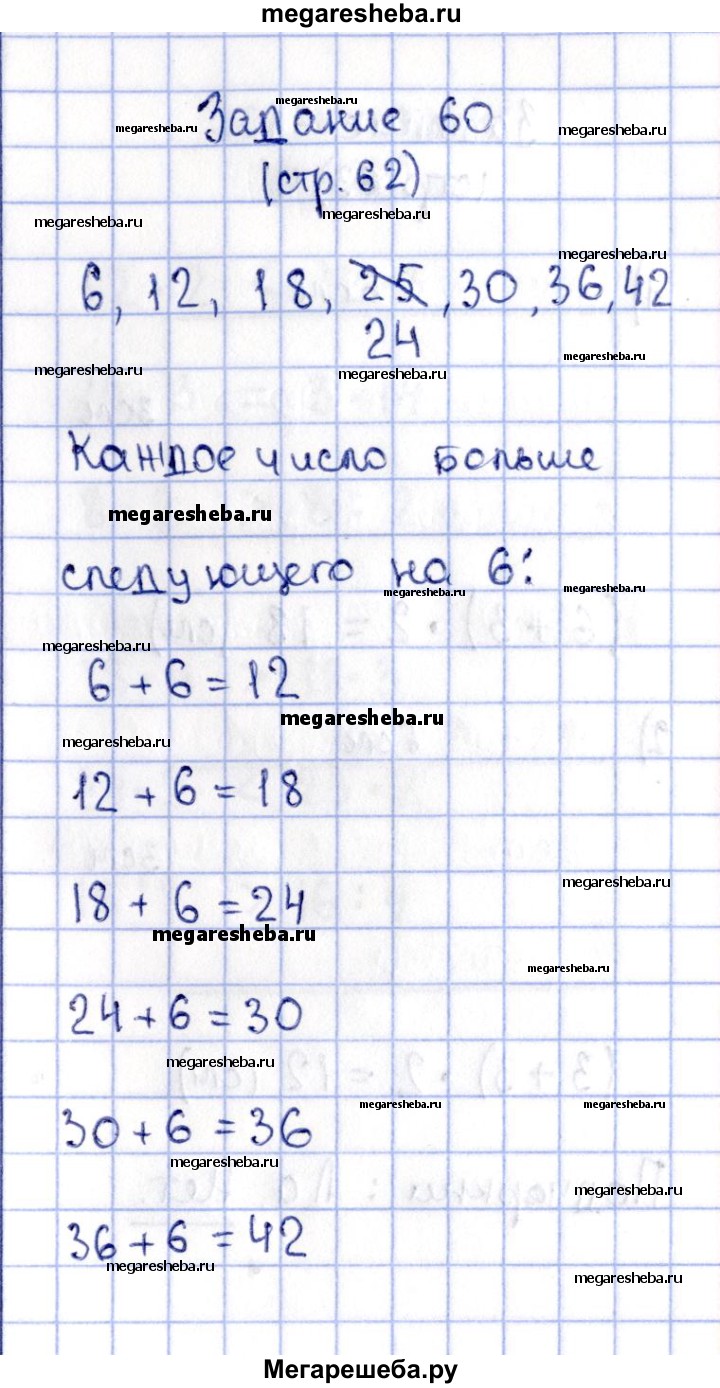 megaresheba.ru
megaresheba.ru
Задание 60
megaresheba.ru
megaresheba.ru
(стр. 62)
megaresheba.ru
megaresheba.ru
megaresheba.ru
6, 12, 18, 25, 30, 36, 42
24
megaresheba.ru
megaresheba.ru
megaresheba.ru
Каждое число больше
megaresheba.ru
следующего на 6:
megaresheba.ru
megaresheba.ru
megaresheba.ru
6 + 6 = 12
megaresheba.ru
megaresheba.ru
12 + 6 = 18
megaresheba.ru
18 + 6 = 24
megaresheba.ru
megaresheba.ru
24 + 6 = 30
megaresheba.ru
megaresheba.ru
megaresheba.ru
30 + 6 = 36
megaresheba.ru
megaresheba.ru
36 + 6 = 42
megaresheba.ru
megaresheba.ru
Мегарешеба.ру